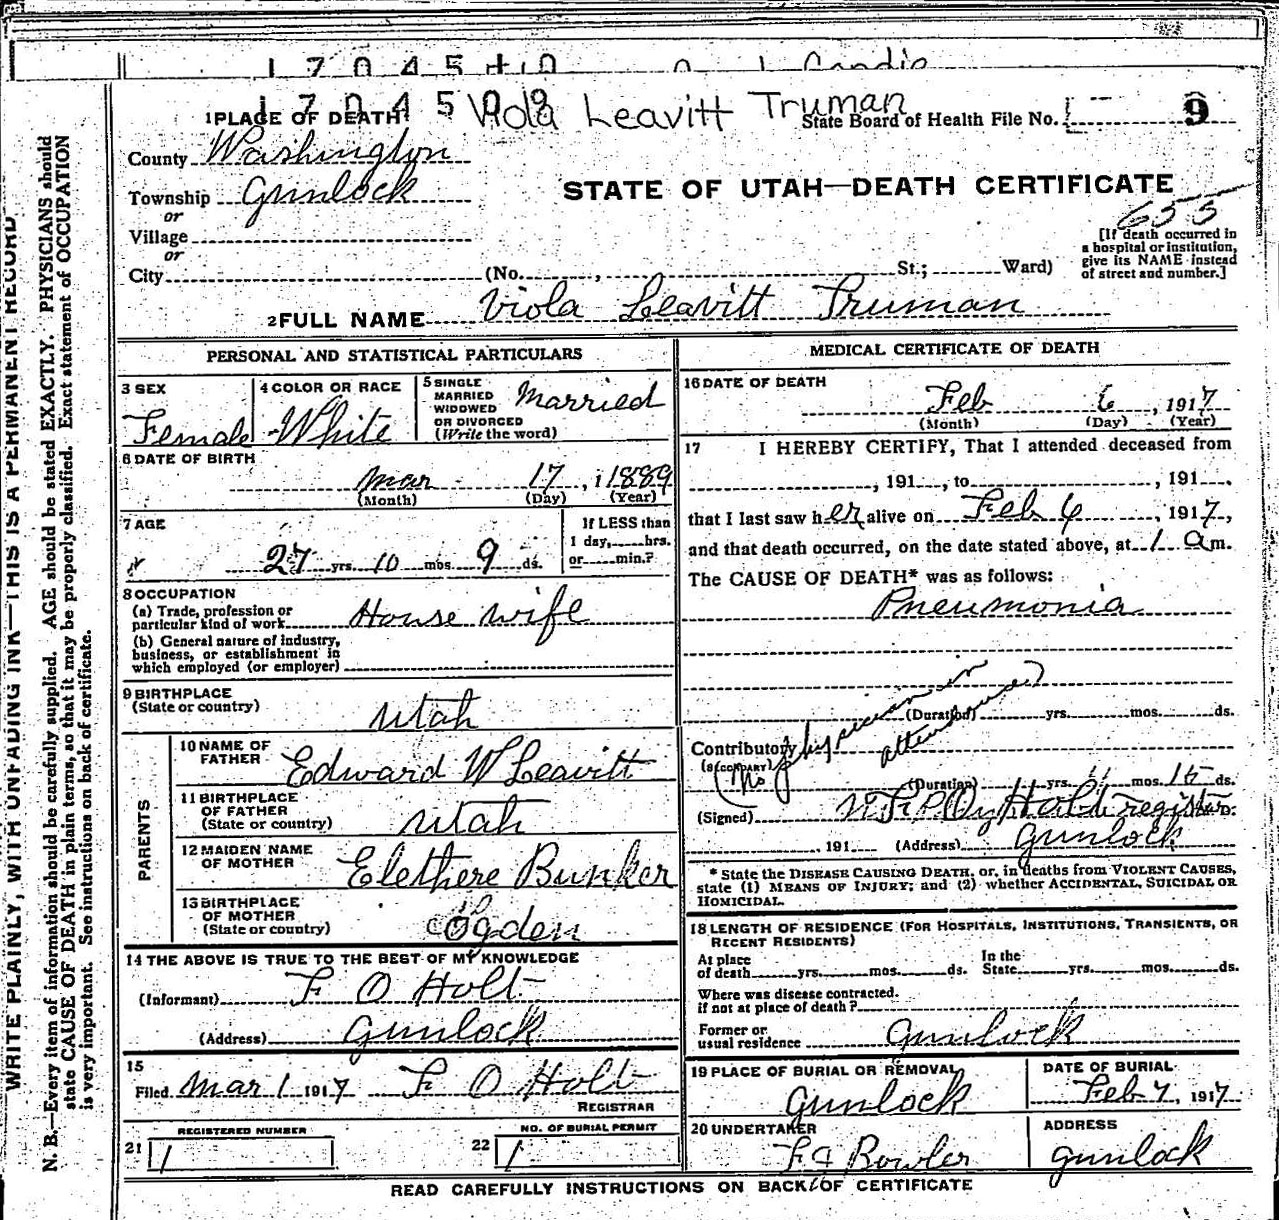 1 7 0 4 5
1 7 0 4 5 0 9 Viola Leavitt Truman
1 PLACE OF DEATH
State Board of Health File No. 9
County Washington
Township Gunlock
or
Village
or
City (No. , St.; Ward)
STATE OF UTAH—DEATH CERTIFICATE
655
[If death occurred in
a hospital or institution,
give its NAME instead
of street and number.]
2 FULL NAME Viola Leavitt Truman
PERSONAL AND STATISTICAL PARTICULARS
3 SEX
Female
4 COLOR OR RACE
White
5 SINGLE
MARRIED
WIDOWED
OR DIVORCED
(Write the word)
Married
6 DATE OF BIRTH
Mar 17, 1889
(Month) (Day) (Year)
7 AGE
27 yrs. 10 mos. 9 ds.
If LESS than
1 day, hrs.
or min.?
8 OCCUPATION
(a) Trade, profession or
particular kind of work House wife
(b) General nature of industry,
business, or establishment in
which employed (or employer)
9 BIRTHPLACE
(State or country)
Utah
PARENTS
10 NAME OF
FATHER
Edward W Leavitt
11 BIRTHPLACE
OF FATHER
(State or country)
Utah
12 MAIDEN NAME
OF MOTHER
Elethere Bunker
13 BIRTHPLACE
OF MOTHER
(State or country)
Ogden
14 THE ABOVE IS TRUE TO THE BEST OF MY KNOWLEDGE
(Informant) F O Holt
(Address) Gunlock
15
Filed Mar 1 1917 F O Holt
REGISTRAR
REGISTERED NUMBER
21 1
NO. OF BURIAL PERMIT
22 1
MEDICAL CERTIFICATE OF DEATH
16 DATE OF DEATH
Feb 6, 1917
(Month) (Day) (Year)
17 I HEREBY CERTIFY, That I attended deceased from
, 191 , to , 191 .
that I last saw her alive on Feb 6, 1917,
and that death occurred, on the date stated above, at 1 a m.
The CAUSE OF DEATH* was as follows:
Pneumonia
(Duration) yrs. mos. ds.
Contributory
(SECONDARY)
(No physician in
attendance)
(Duration) yrs. mos. 15 ds.
(Signed) Holt register
, 191 (Address) Gunlock
* State the DISEASE CAUSING DEATH, or, in deaths from VIOLENT CAUSES,
state (1) MEANS OF INJURY; and (2) whether ACCIDENTAL, SUICIDAL OR
HOMICIDAL.
18 LENGTH OF RESIDENCE (FOR HOSPITALS, INSTITUTIONS, TRANSIENTS, OR
RECENT RESIDENTS)
At place
of death yrs. mos. ds.
In the
State yrs. mos. ds.
Where was disease contracted.
if not at place of death?
Former or
usual residence Gunlock
19 PLACE OF BURIAL OR REMOVAL
Gunlock
DATE OF BURIAL
Feb 7, 1917
20 UNDERTAKER
Bowler
ADDRESS
Gunlock
READ CAREFULLY INSTRUCTIONS ON BACK OF CERTIFICATE
WRITE PLAINLY, WITH UNFADING INK—THIS IS A PERMANENT RECORD
N. B.—Every item of information should be carefully supplied. AGE should be stated EXACTLY. PHYSICIANS should
state CAUSE OF DEATH in plain terms, so that it may be properly classified. Exact statement of OCCUPATION
is very important. See instructions on back of certificate.